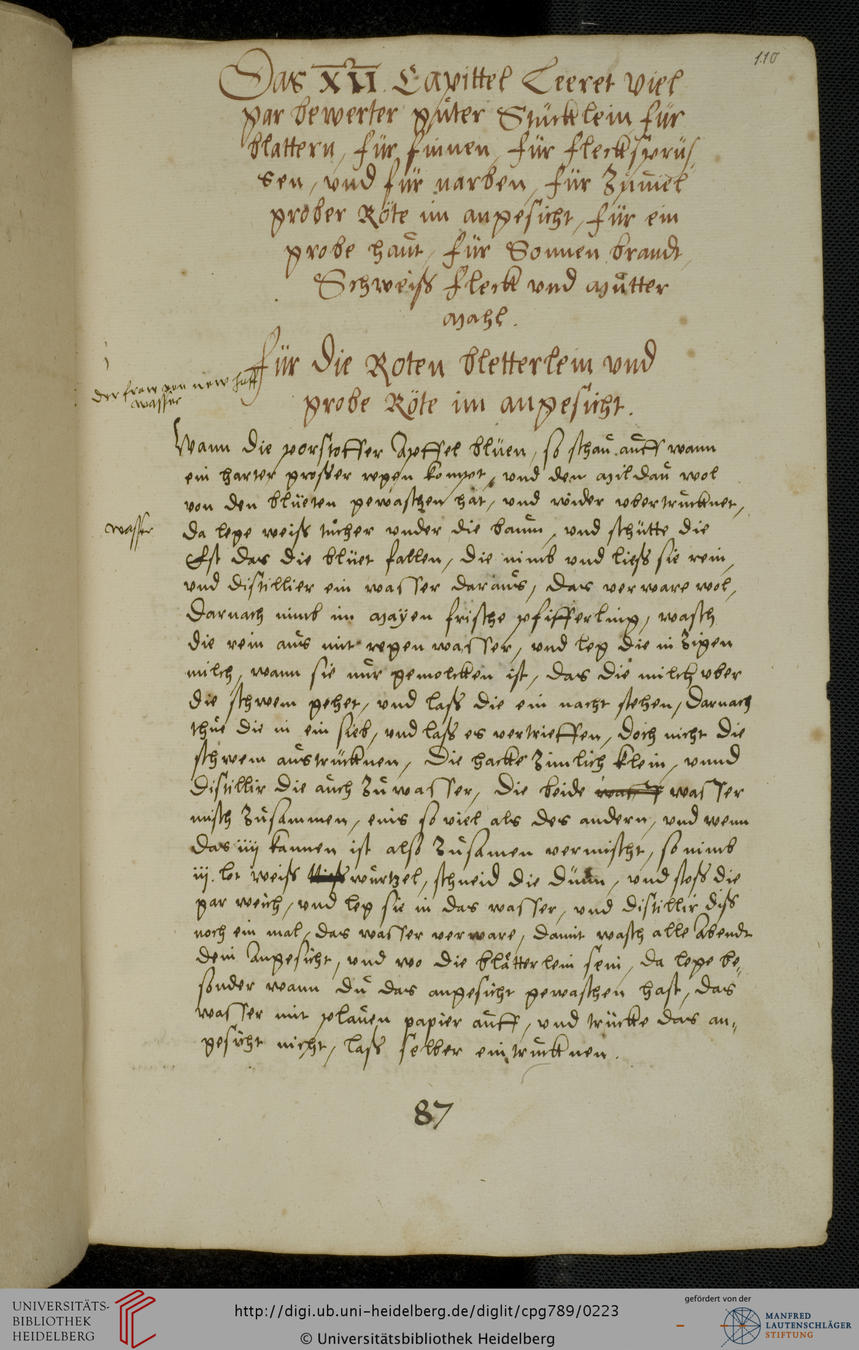 110
Das XII Capittel Leeret viel
gar bewerter guter Stücklein für
blattern, für finnen, für flecksprüs,
sen, vnd für narben, für Zuuiel
grober Röte im angesicht, für ein
grobe haut, für Sonnen brandt,
Schweiss fleck vnd Mutter
Mahl.
für die Roten bletterlein vnd
grobe Röte im angesicht.
wasser
Wann die porstorffer Apffel blüen, so schau auff wann
ein harter grosser regen kompt, vnd den Mildau wol
von den blüeten gewaschen hat, vnd wider vbertrucknet,
da lege weiss tücher vnder die baum, vnd schütte die
Est das die blüet fallen, die nimb vnd liess sie rein,
vnd distillier ein wasser daraus, das verware wol,
Darnach nimb im Mayen frische pfifferling, wasch
die rein aus mit regen wasser, vnd leg die in Zigen
milch, wann sie nur gemolcken ist, das die milch vber
die schwem gehet, vnd lass die ein nacht stehen, Darnach
thue die in ein sieb, vnd lass es vertrieffen, doch nicht die
schwem austrücknen, die hacke Zimlich klein, vnnd
Distillir die auch Zu wasser, die beide wasser
misch Zusammen, eins so viel als des andern, vnd wenn
das iiij kannen ist also Zusamen vermischt, so nimb
iij. lot weiss wurtzel, schneid die dünn, vnd stoss die
gar weich, vnd leg sie in das wasser, vnd distillir diss
noch ein mal, das wasser verware, damit wasch alle Abendt
dein Angesicht, vnd wo die blätterlein sein, da lege be,
sonder wann du das angesicht gewaschen hast, das
wasser mit plauen papier auff, vnd trücke das an,
gesicht nicht, lass selber ein trucknen.
87
UNIVERSITÄTS-
BIBLIOTHEK
HEIDELBERG
http://digi.ub.uni-heidelberg.de/diglit/cpg789/0223
© Universitätsbibliothek Heidelberg
gefördert von der
MANFRED
LAUTENSCHLÄGER
STIFTUNG